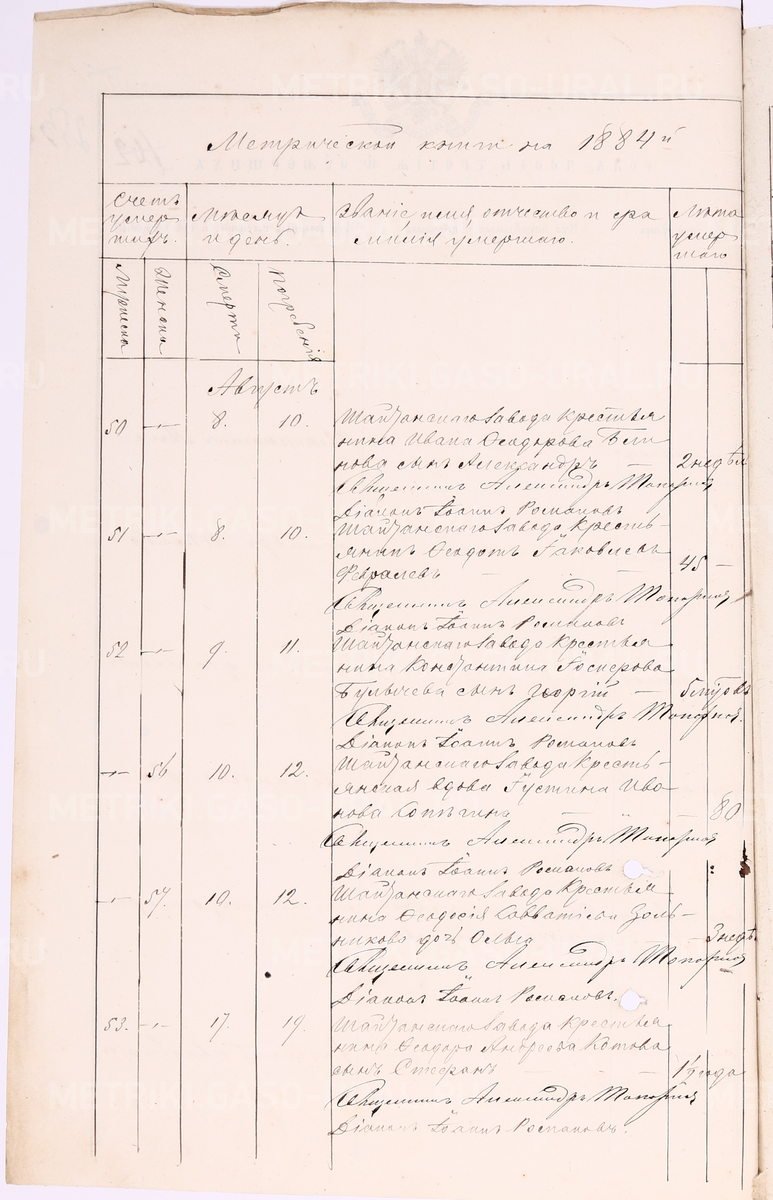 Метрической книги на 1884 й
Счетъ умер шихъ.
Мѣсяцъ и день.
Званіе, имя, отчество и фа милія умершаго.
Лѣта умер шаго
Мужеска
Женска
Смерти
Погребенія
Августъ
50 — 8. 10. Шайтанскаго Завода Крестья
нина Ивана Ѳеодорова
нова сынъ Александръ — 2 недѣл
Священникъ Александръ Топорков
Діаконъ Іоаннъ Романовъ
51 — 8. 10. Шайтанскаго Завода Кресть-
янинъ Ѳеодотъ Іаковлевъ
Февралевъ — 45 —
Священникъ Александръ
Діаконъ Іоаннъ Романовъ
52 — 9. 11. Шайтанскаго Завода Крестья
нина Константина
Булычева сынъ Георгій — 5
Священникъ Александръ
Діаконъ Іоаннъ Романовъ
— 56 10. 12. Шайтанскаго Завода Кресть-
янская вдова Іустина Ива
нова — 80
Священникъ Александръ
Діаконъ Іоаннъ Романовъ
— 57. 10. 12. Шайтанскаго Завода Крестья
нина Ѳеодосія Савватіева Золь-
никова дочь Ольга — 3 недѣ
Священникъ Александръ
Діаконъ Іоаннъ Романовъ.
53. — 17. 19. Шайтанскаго Завода Крестья
нина Ѳеодора Андреева Котова
сынъ Стефанъ — 1½ года
Священникъ Александръ
Діаконъ Іоаннъ Романовъ.